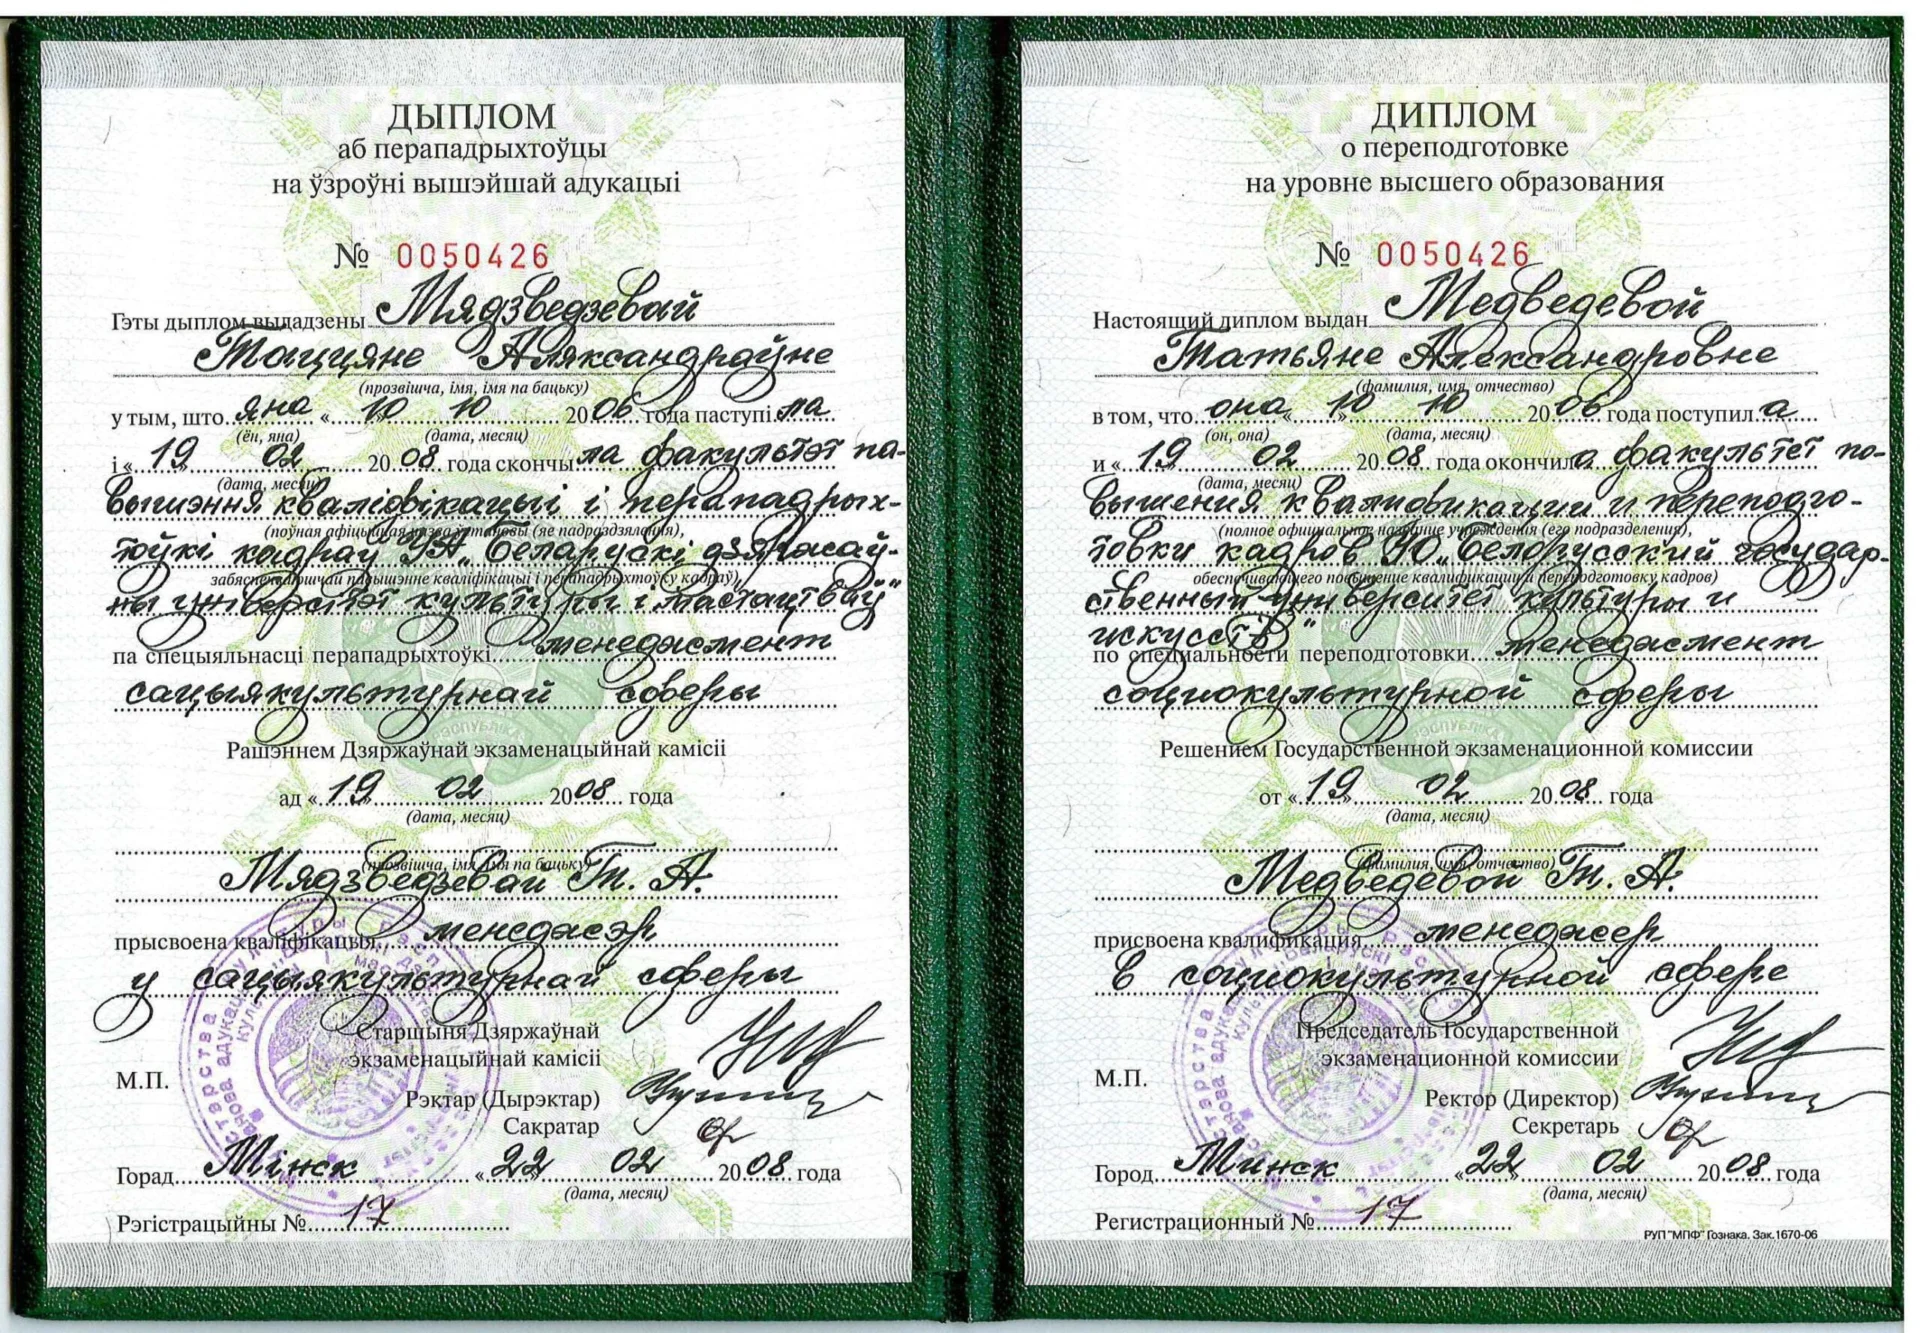 ДЫПЛОМ
аб перападрыхтоўцы
на ўзроўні вышэйшай адукацыі
№ 0050426
Гэты дыплом выдадзены Мядзведзевай
Таццяне Аляксандраўне
(прозвішча, імя, імя па бацьку)
у тым, што яна « 10 » 10 2006 года паступіла
(ён, яна) (дата, месяц)
і « 19 » 02 2008 года скончыла факультэт па-
(дата, месяц)
вышэння кваліфікацыі і перападрых-
(поўная афіцыйная назва ўстановы (яе падраздзялення),
тоўкі кадраў УА "Беларускі дзяржаў-
забяспечваючай павышэнне кваліфікацыі і перападрыхтоўку кадраў)
ны універсітэт культуры і мастацтваў"
па спецыяльнасці перападрыхтоўкі менеджмент
сацыякультурнай сферы
Рашэннем Дзяржаўнай экзаменацыйнай камісіі
ад « 19 » 02 2008 года
(дата, месяц)
(прозвішча, імя, імя па бацьку)
Мядзведзевай Т. А.
прысвоена кваліфікацыя менеджэр
у сацыякультурнай сферы
Старшыня Дзяржаўнай
экзаменацыйнай камісіі
М.П.
Рэктар (Дырэктар)
Сакратар
Горад Мінск «22» 02 2008 года
(дата, месяц)
Рэгістрацыйны № 17
ДИПЛОМ
о переподготовке
на уровне высшего образования
№ 0050426
Настоящий диплом выдан Медведевой
Татьяне Александровне
(фамилия, имя, отчество)
в том, что она « 10 » 10 2006 года поступила
(он, она) (дата, месяц)
и « 19 » 02 2008 года окончила факультет по-
(дата, месяц)
вышения квалификации и переподго-
(полное официальное название учреждения (его подразделения),
товки кадров УО "Белорусский государ-
обеспечивающего повышение квалификации и переподготовку кадров)
ственный университет культуры и
искусств"
по специальности переподготовки менеджмент
социокультурной сферы
Решением Государственной экзаменационной комиссии
от « 19 » 02 2008 года
(дата, месяц)
(фамилия, имя, отчество)
Медведевой Т. А.
присвоена квалификация менеджер
в социокультурной сфере
Председатель Государственной
экзаменационной комиссии
М.П.
Ректор (Директор)
Секретарь
Город Минск «22» 02 2008 года
(дата, месяц)
Регистрационный № 17
РУП "МПФ" Гознака. Зак. 1670-06